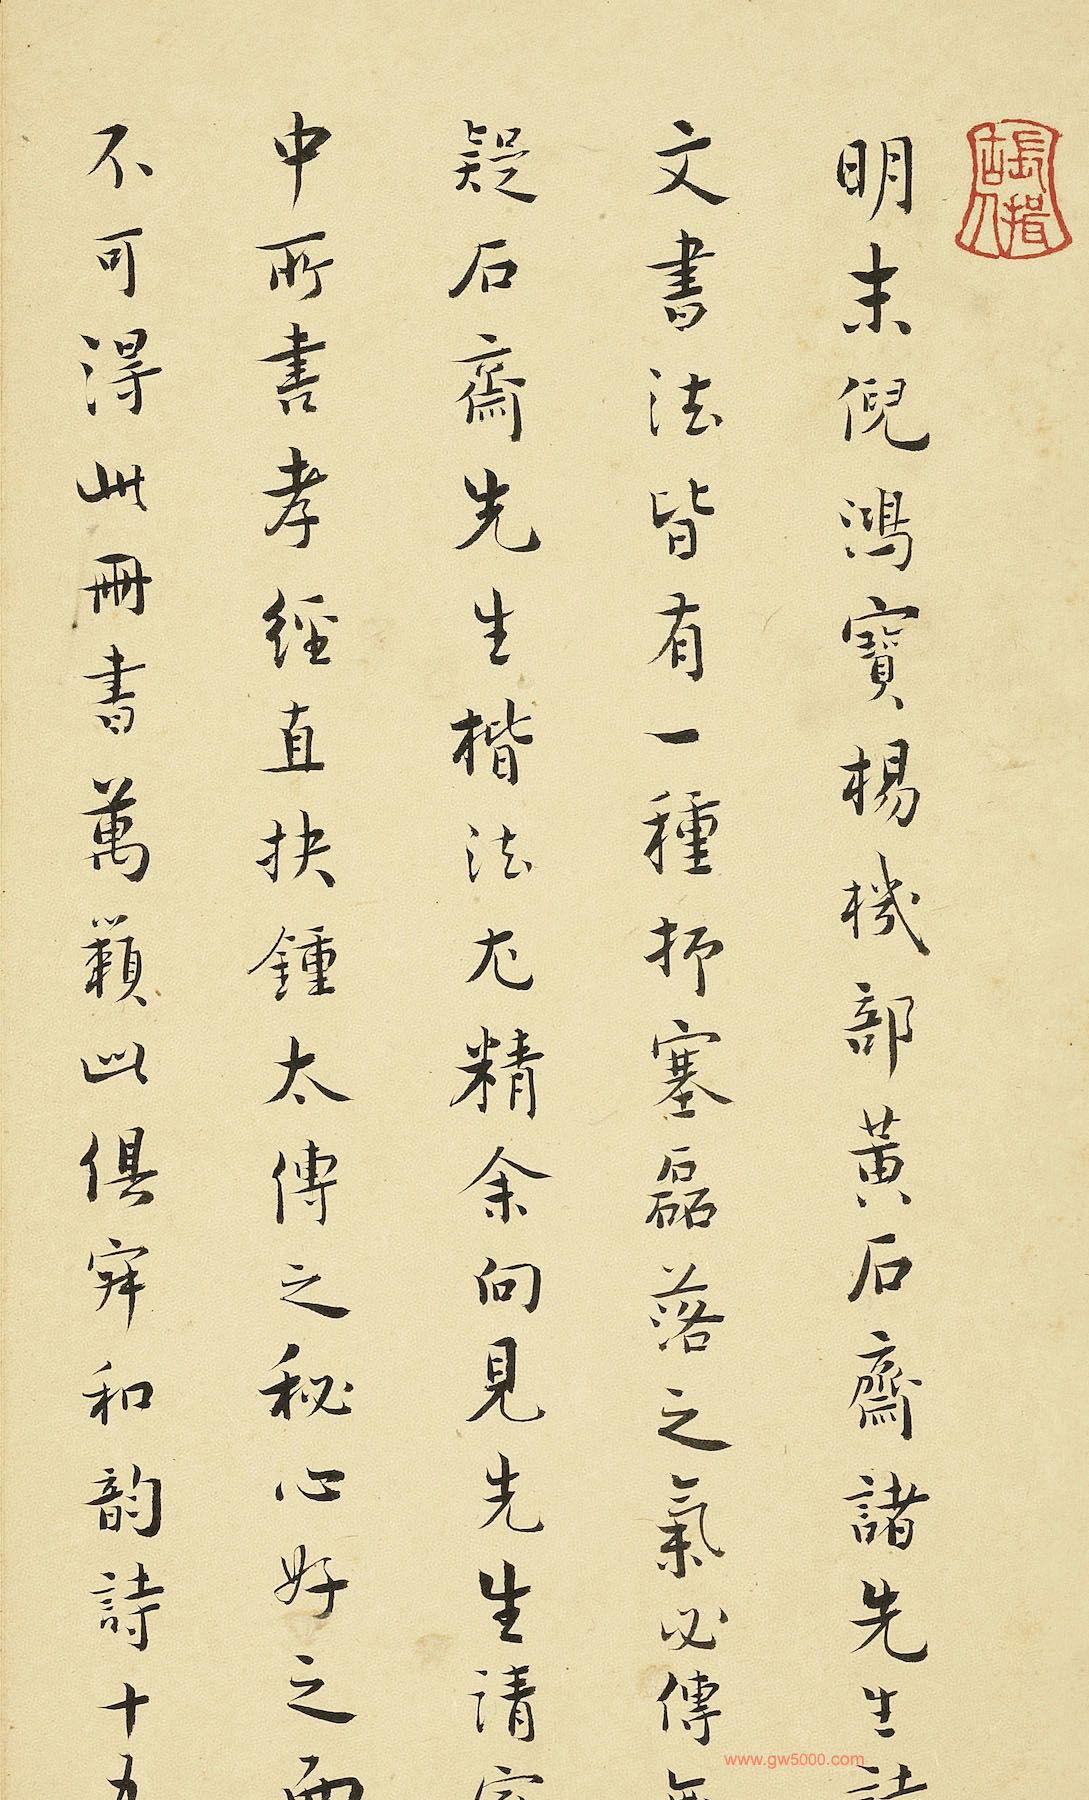 明末倪鴻寶楊機部黃石齋諸先生詩
文書法皆有一種抑塞磊落之氣必傳無
疑石齋先生楷法尤精余向見先生請室
中所書孝經直抉鍾太傅之秘心好之而
不可得此冊書萬籟此俱寂和韵詩十九
www.gw5000.com